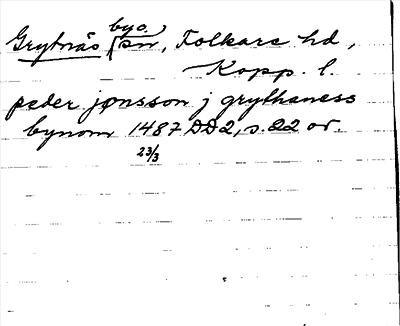 Grytnäs byo.
sn, Folkare hd,
Kopp. l.
peder jønsson j grythaness
bynom 1487 DD2, s. 22 or.
23/3